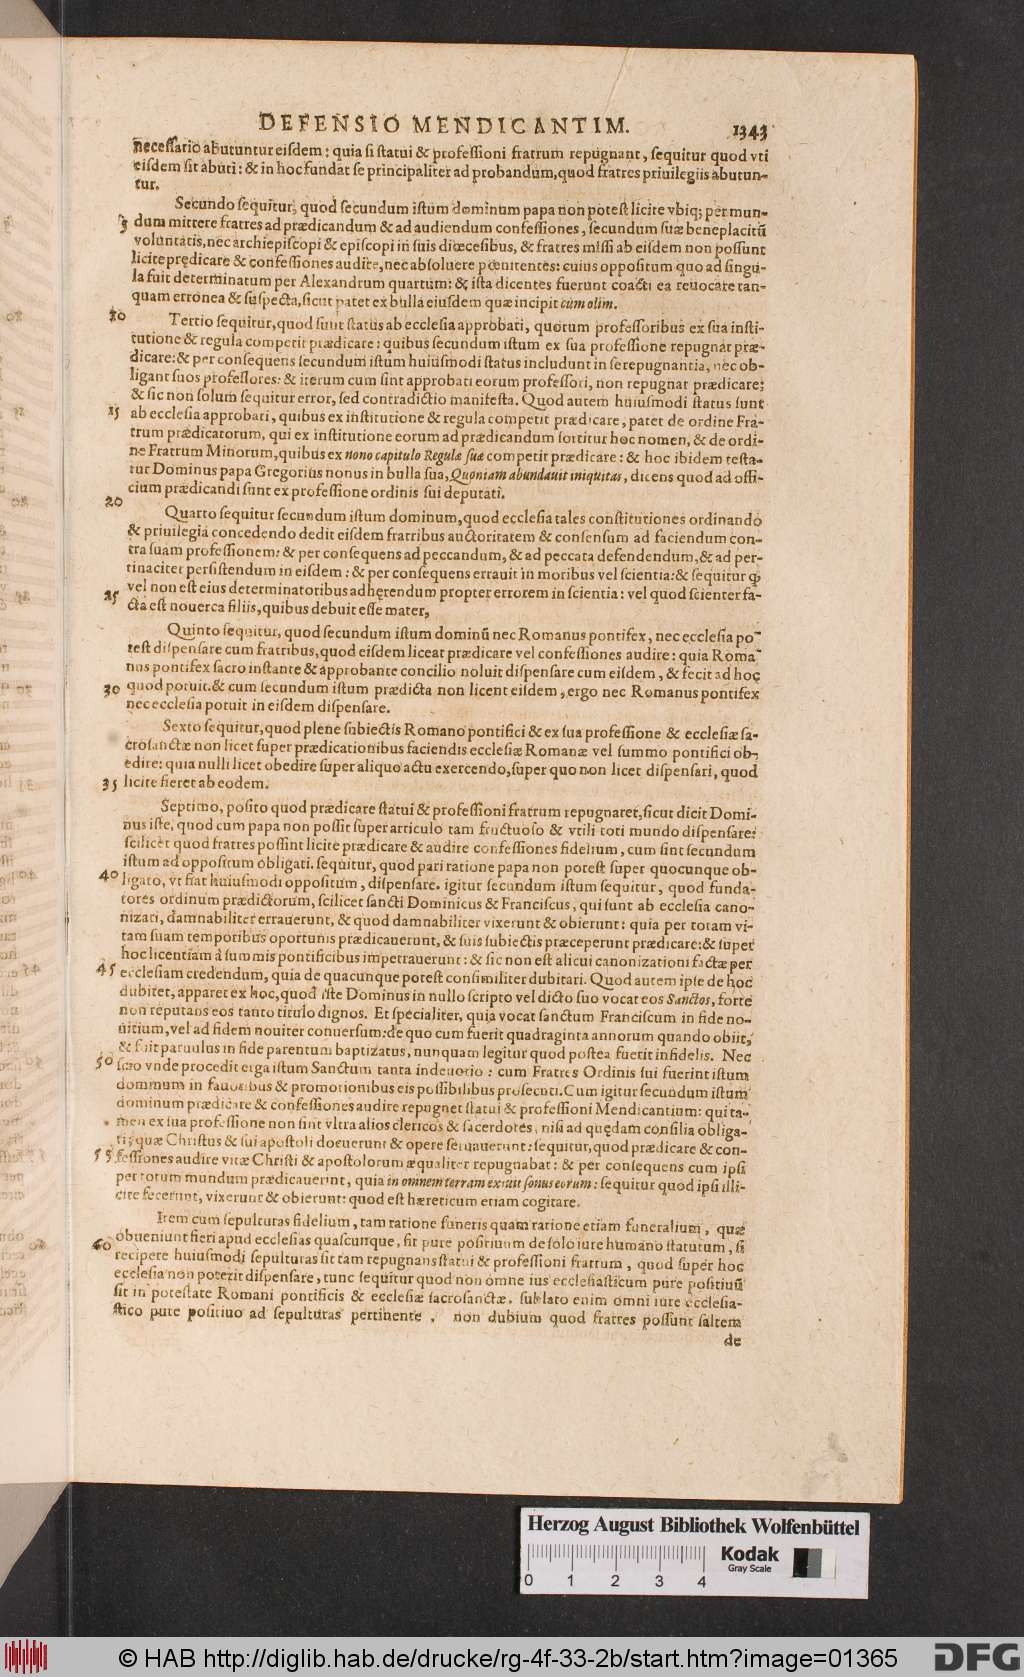 DEFENSIO MENDICANTIM. 1343
necessario abutuntur eisdem: quia si statui & professioni fratrum repugnant, sequitur quod vti
eisdem sit abuti: & in hoc fundat se principaliter ad probandum, quod fratres priuilegiis abutun-
tur.
Secundo sequitur, quod secundum istum dominum papa non potest licite vbiq; per mun-
5 dum mittere fratres ad prædicandum & ad audiendum confessiones, secundum suæ beneplacitū
voluntatis, nec archiepiscopi & episcopi in suis diœcesibus, & fratres missi ab eisdem non possunt
licite prędicare & confessiones audire, nec absoluere pœnitentes: cuius oppositum quo ad singu-
la fuit determinatum per Alexandrum quartum: & ista dicentes fuerunt coacti ea reuocare tan-
quam erronea & suspecta, sicut patet ex bulla eiusdem quæ incipit cum olim.
10 Tertio sequitur, quod sunt status ab ecclesia approbati, quorum professoribus ex sua insti-
tutione & regula competit prædicare: quibus secundum istum ex sua professione repugnat præ-
dicare: & per consequens secundum istum huiusmodi status includunt in se repugnantia, nec ob-
ligant suos professores: & iterum cum sint approbati eorum professori, non repugnat prædicare;
& sic non solum sequitur error, sed contradictio manifesta. Quod autem huiusmodi status sunt
15 ab ecclesia approbati, quibus ex institutione & regula competit prædicare, patet de ordine Fra-
trum prædicatorum, qui ex institutione eorum ad prædicandum sortitur hoc nomen, & de ordi-
ne Fratrum Minorum, quibus ex nono capitulo Regulæ suæ competit prædicare: & hoc ibidem testa-
tur Dominus papa Gregorius nonus in bulla sua, Quoniam abundauit iniquitas, dicens quod ad offi-
cium prædicandi sunt ex professione ordinis sui deputati.
20 Quarto sequitur secundum istum dominum, quod ecclesia tales constitutiones ordinando
& priuilegia concedendo dedit eisdem fratribus auctoritatem & consensum ad faciendum con-
tra suam professionem: & per consequens ad peccandum, & ad peccata defendendum, & ad per-
tinaciter persistendum in eisdem: & per consequens errauit in moribus vel scientia: & sequitur ꝙ
vel non est eius determinatoribus adhęrendum propter errorem in scientia: vel quod scienter fa-
25 cta est nouerca filiis, quibus debuit esse mater,
Quinto sequitur, quod secundum istum dominū nec Romanus pontifex, nec ecclesia po-
test dispensare cum fratribus, quod eisdem liceat prædicare vel confessiones audire: quia Roma-
nus pontifex sacro instante & approbante concilio noluit dispensare cum eisdem, & fecit ad hoc
30 quod potuit. & cum secundum istum prædicta non licent eisdem, ergo nec Romanus pontifex
nec ecclesia potuit in eisdem dispensare.
Sexto sequitur, quod plene subiectis Romano pontifici & ex sua professione & ecclesiæ sa-
crosanctæ non licet super prædicationibus faciendis ecclesiæ Romanæ vel summo pontifici ob-
edire: quia nulli licet obedire super aliquo actu exercendo, super quo non licet dispensari, quod
35 licite fieret ab eodem.
Septimo, posito quod prædicare statui & professioni fratrum repugnaret, sicut dicit Domi-
nus iste, quod cum papa non possit super articulo tam fructuoso & vtili toti mundo dispensare:
scilicet quod fratres possint licite prædicare & audire confessiones fidelium, cum sint secundum
istum ad oppositum obligati. sequitur, quod pari ratione papa non potest super quocunque ob-
40 ligato, vt fiat huiusmodi oppositum, dispensare. igitur secundum istum sequitur, quod funda-
tores ordinum prædictorum, scilicet sancti Dominicus & Franciscus, qui sunt ab ecclesia cano-
nizati, damnabiliter errauerunt, & quod damnabiliter vixerunt & obierunt: quia per totam vi-
tam suam temporibus oportunis prædicauerunt, & suis subiectis præceperunt prædicare: & super
hoc licentiam à summis pontificibus impetrauerunt: & sic non est alicui canonizationi factæ per
45 ecclesiam credendum, quia de quacunque potest consimiliter dubitari. Quod autem ipse de hoc
dubitet, apparet ex hoc, quod iste Dominus in nullo scripto vel dicto suo vocat eos Sanctos, forte
non reputans eos tanto titulo dignos. Et specialiter, quia vocat sanctum Franciscum in fide no-
uitium, vel ad fidem nouiter conuersum: de quo cum fuerit quadraginta annorum quando obiit,
& fuit paruulus in fide parentum baptizatus, nunquam legitur quod postea fuerit infidelis. Nec
50 scio vnde procedit erga istum Sanctum tanta indeuotio: cum Fratres Ordinis sui fuerint istum
dominum in fauoribus & promotionibus eis possibilibus prosecuti. Cum igitur secundum istum
dominum prædicare & confessiones audire repugnet statui & professioni Mendicantium: qui ta-
men ex sua professione non sint vltra alios clericos & sacerdotes, nisi ad quędam consilia obliga-
ti, quæ Christus & sui apostoli docuerunt & opere seruauerunt: sequitur, quod prædicare & con-
55 fessiones audire vitæ Christi & apostolorum æqualiter repugnabat: & per consequens cum ipsi
per totum mundum prædicauerint, quia in omnem terram exiuit sonus eorum: sequitur quod ipsi illi-
cite fecerunt, vixerunt & obierunt: quod est hæreticum etiam cogitare.
Item cum sepulturas fidelium, tam ratione funeris quam ratione etiam funeralium, quæ
60 obueniunt fieri apud ecclesias quascunque, sit pure positiuum de solo iure humano statutum, si
recipere huiusmodi sepulturas sit tam repugnans statui & professioni fratrum, quod super hoc
ecclesia non poterit dispensare, tunc sequitur quod non omne ius ecclesiasticum pure positiuū
sit in potestate Romani pontificis & ecclesiæ sacrosanctæ. sublato enim omni iure ecclesia-
stico pure positiuo ad sepulturas pertinente, non dubium quod fratres possunt saltem
de
Herzog August Bibliothek Wolfenbüttel
Kodak
Gray Scale
0 1 2 3 4
© HAB http://diglib.hab.de/drucke/rg-4f-33-2b/start.htm?image=01365
DFG